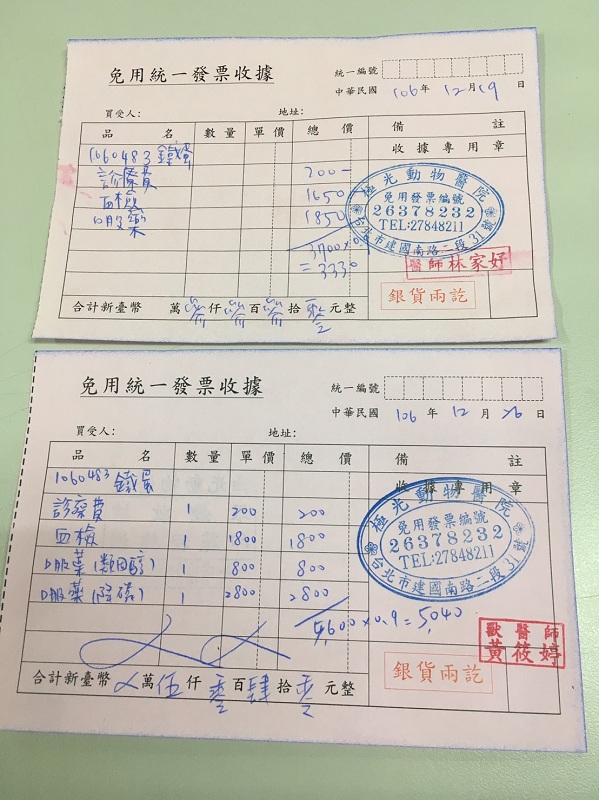 免用統一發票收據
統一編號
中華民國 106 年 12 月 19 日
買受人: 地址:
品名 數量 單價 總價 備註
1060483 鐵蛋 收據專用章
診療費 200-
血檢 1650
口服藥 1850
3700×0.9
=3330
極光動物醫院
免用發票編號
26378232
TEL:27848211
台北市建國南路二段31號
醫師林家妤
銀貨兩訖
合計新臺幣 萬叁仟叁百叁拾零元整
免用統一發票收據
統一編號
中華民國 106 年 12 月 26 日
買受人: 地址:
品名 數量 單價 總價 備註
1060483 鐵蛋 收據專用章
診察費 1 200 200
血檢 1 1800 1800
口服藥(類固醇) 1 800 800
口服藥(降磷) 1 2800 2800
5,600×0.9=5,040
極光動物醫院
免用發票編號
26378232
TEL:27848211
台北市建國南路二段31號
獸醫師
黃筱婷
銀貨兩訖
合計新臺幣 萬伍仟零百肆拾零元整